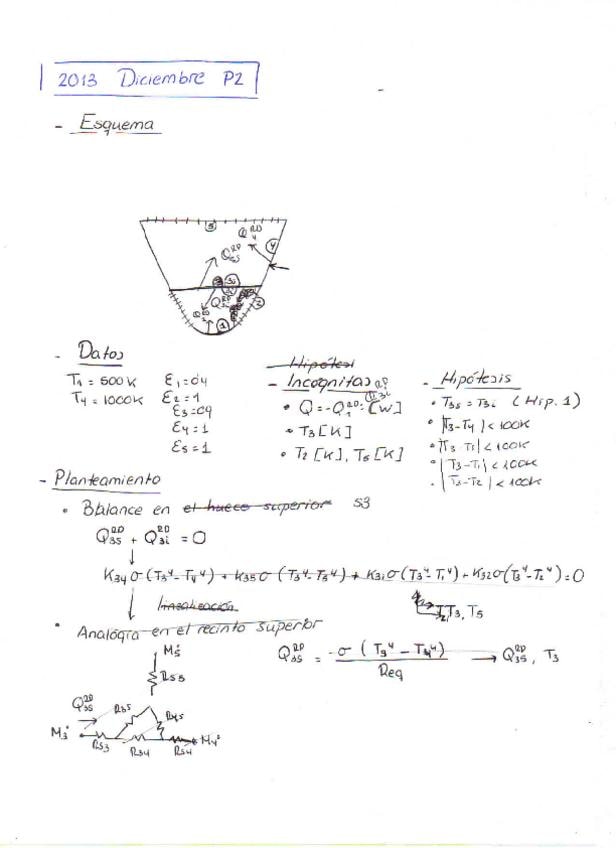 2013 Diciembre P2
- Esquema
5
Q4^RD
4
Q3s^RD
3s
3i
Q3i^RD
2
1
- Datos
T1 = 500K ε1=0'4
T4 = 1000K ε2=1
ε3=0'9
ε4=1
ε5=1
Hipótesi
- Incognitas
• Q=-Q1^RD= [W]
• T3 [K]
• T2 [K], T5 [K]
- Hipótesis
• T3s = T3i (Hip. 1)
• |T3-T4| < 100K
• |T3-T5| < 100K
• |T3-T1| < 100K
• |T3-T2| < 100K
- Planteamiento
• Balance en el hueco superior S3
Q3s^RD + Q3i^RD = 0
K34σ(T3⁴-T4⁴) + K35σ(T3⁴-T5⁴) + K31σ(T3⁴-T1⁴) + K32σ(T3⁴-T2⁴)=0
linealización
T3, T5
• Analogía en el recinto superior
Q3s^RD = σ(T3⁴-T4⁴) / Req → Q3s^RD, T3
M5°
Rs5
Q3s^RD
R35
R45
M3°
Rs3
R34
Rs4
M4°